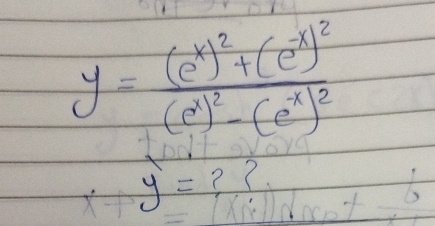 y = \frac{(e^x)^2 + (e^{-x})^2}{(e^x)^2 - (e^{-x})^2}
y̍ = ? ?